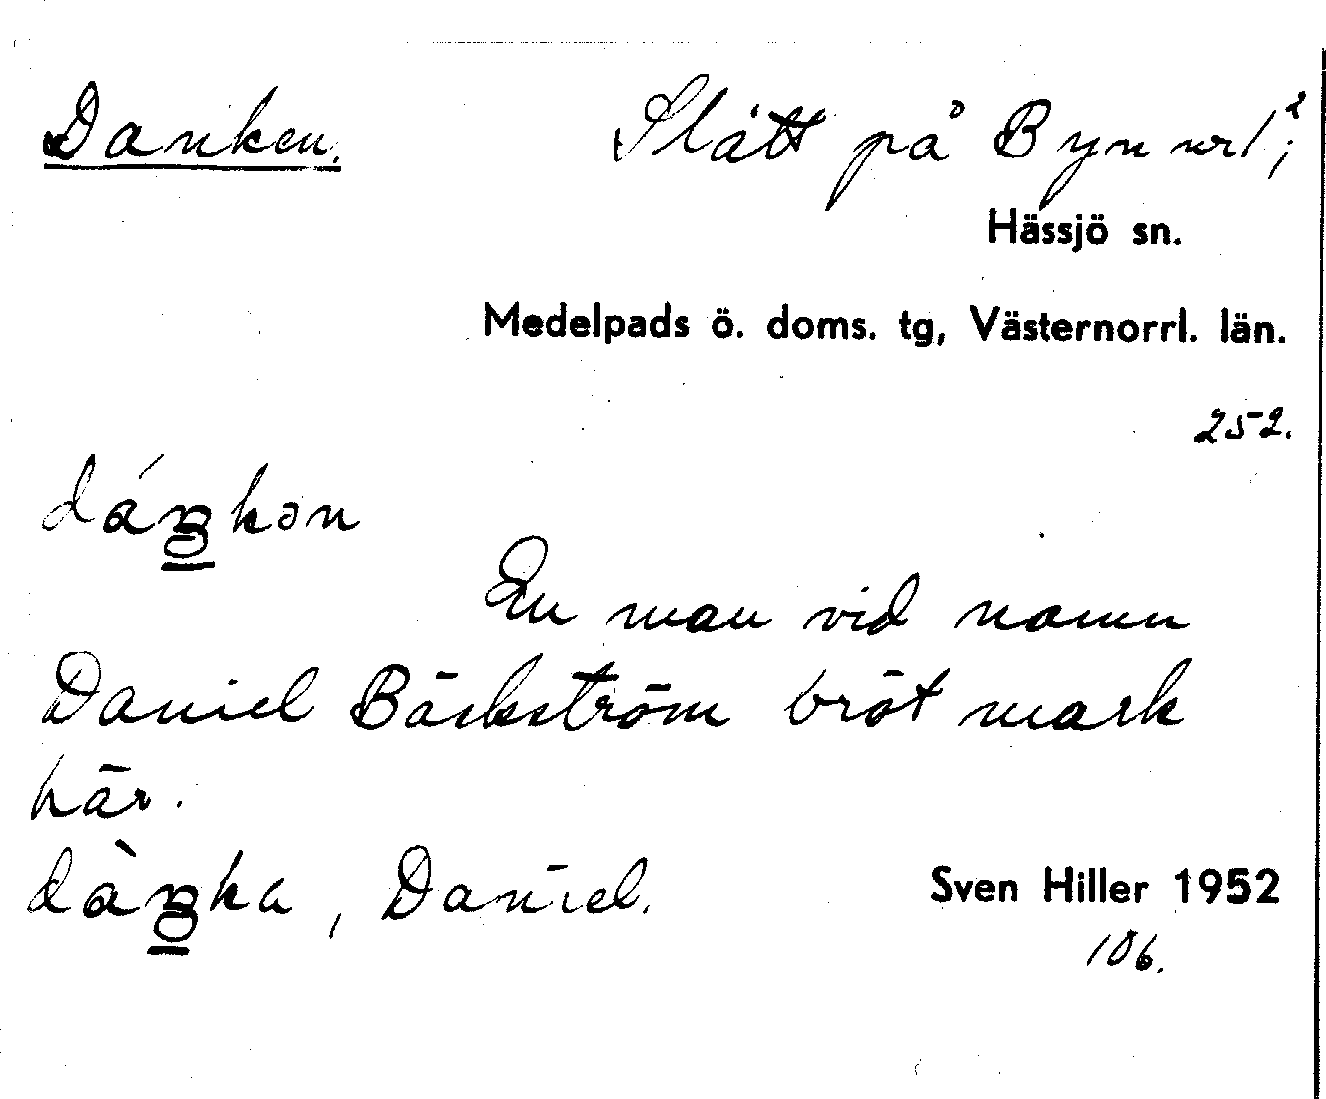 Danken. Slått på Byn nr 1²;
Hässjö sn.
Medelpads ö. doms. tg, Västernorrl. län.
252.
dáŋkən
En man vid namn
Daniel Bäckström bröt mark
här.
dàŋka, Daniel.
Sven Hiller 1952
106.